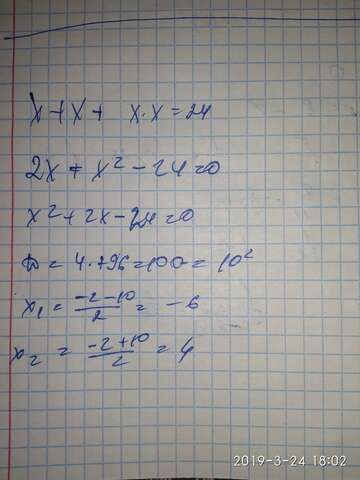 x + x + x · x = 24
2x + x² - 24 = 0
x² + 2x - 24 = 0
D = 4 + 96 = 100 = 10²
x₁ = (-2-10)/2 = -6
x₂ = (-2+10)/2 = 4
2019-3-24 18:02